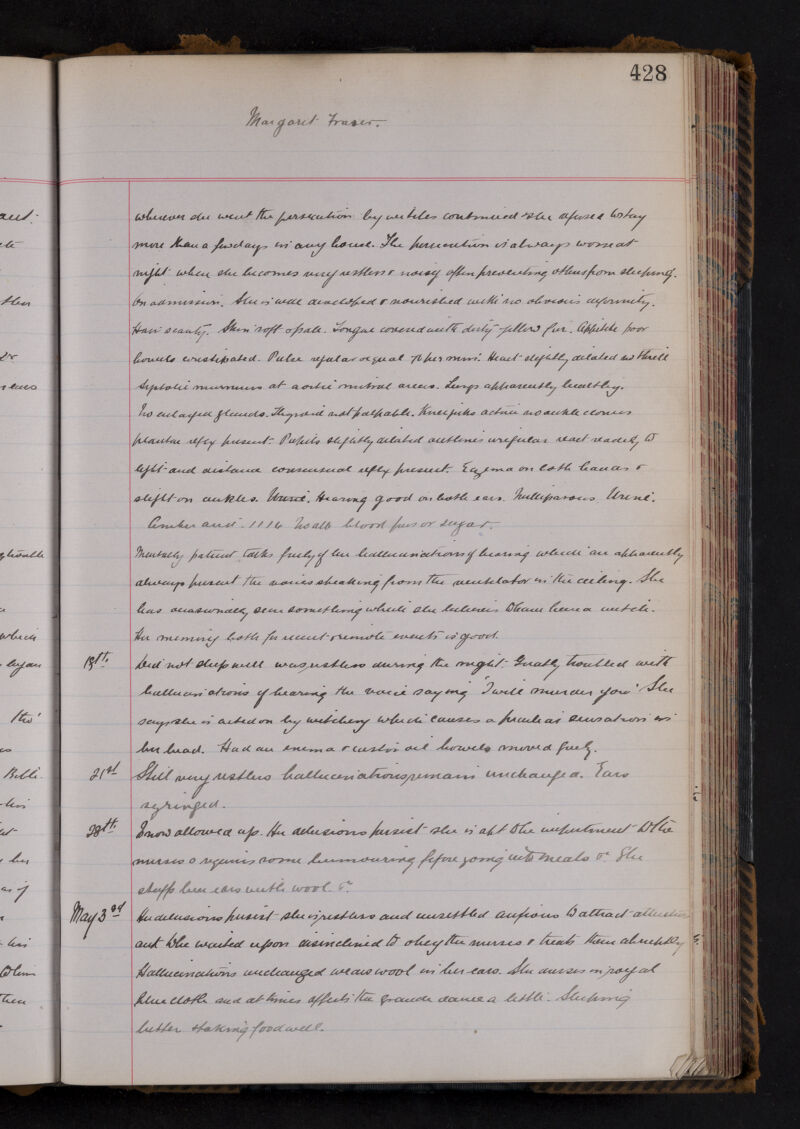 428
Margaret Fraser.
wherever she went the persecution by witches continued & she refused to stay
more than a few days in any house. The persecution is always worse at
night when she becomes very restless & noisy often preventing others from sleeping.
On admission. She is well developed & nourished with no obvious deformity.
Hair scanty. Skin soft & pale. Tongue covered with dirty yellow fur. Appetite poor
bowels constipated. Pulse regular & equal per min. Heart slightly dilated no thrill
Systolic murmurs at aortic mitral areas. Lungs apparently healthy.
No enlarged glands. Thyroid not palpable. Knee jerks active no ankle clonus
plantar reflex present. Pupils slightly dilated outlines irregular react readily to
light and distance consensual reflex present. Eczema on both hands &
slight on ankles. Urine. Hearing good on both ears. Nulliparous. Urine.
Amber acid. No alb blood pus or sugar.
Mentally patient talks freely of her hallucinations of hearing which are apparently
always present the voices speaking from the ventilator in the ceiling. She
has occasionally seen something which she believes to have been a witch.
Her memory both for recent & remote events is good.
19th Did not sleep well was restless during the night. Greatly troubled with
hallucinations of hearing the voice saying "I will murder you" She
says she is acted on by witchery which causes a peculiar sensation in
her head. Had an enema & castor oil bowels moved freely.
21st Still very restless hallucinations remain unchanged. Ears
syringed.
28th Is now allowed up. Her delusions persist she is apt to be impertinent to the
nurses & requires some humouring before going into meals &c. She
stuffs her ears with wool &c.
May 3rd Her delusions persist she is restless and unsettled anxious to attract attention
and to be waited upon disinclined to obey the nurses & treats them abruptly &c.
Hallucinations unchanged wears wool in her ears. She dresses in royal
blue cloth and at times affects the grande dame a little. Sleeping
better & taking food well.